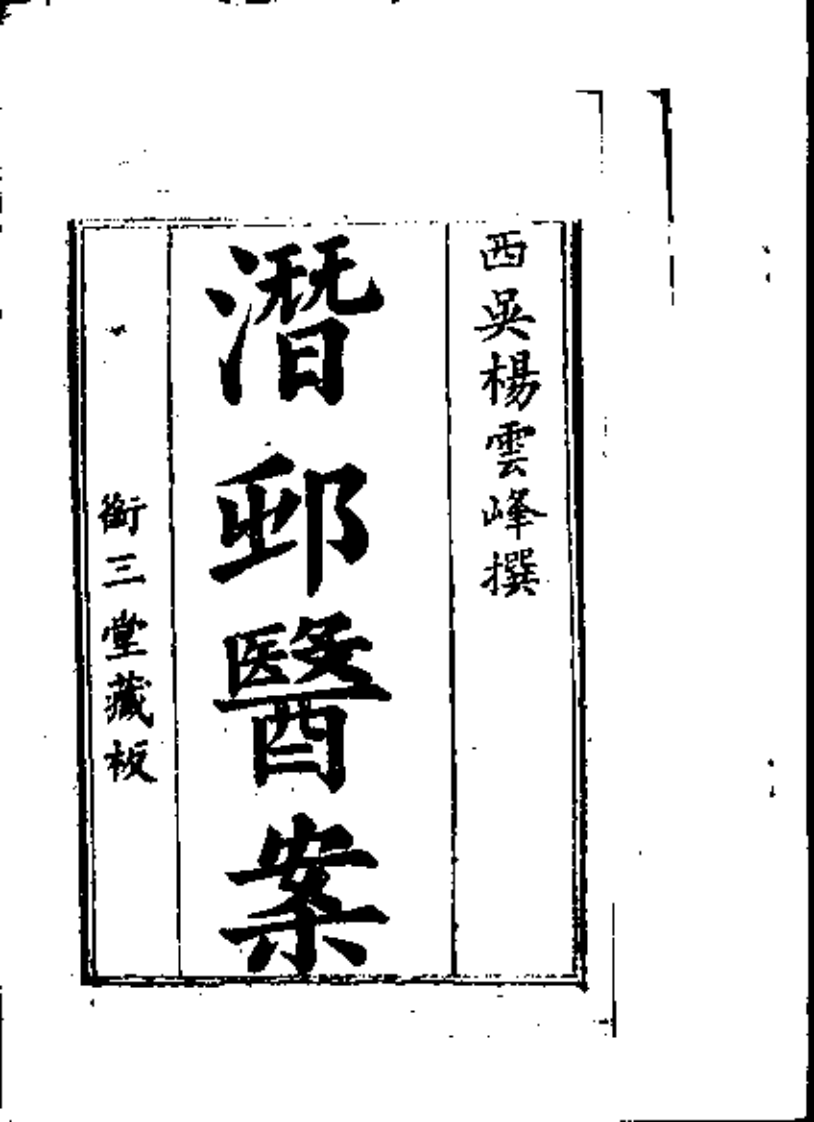 西吳楊雲峰撰
潛邨醫案
銜三堂藏板